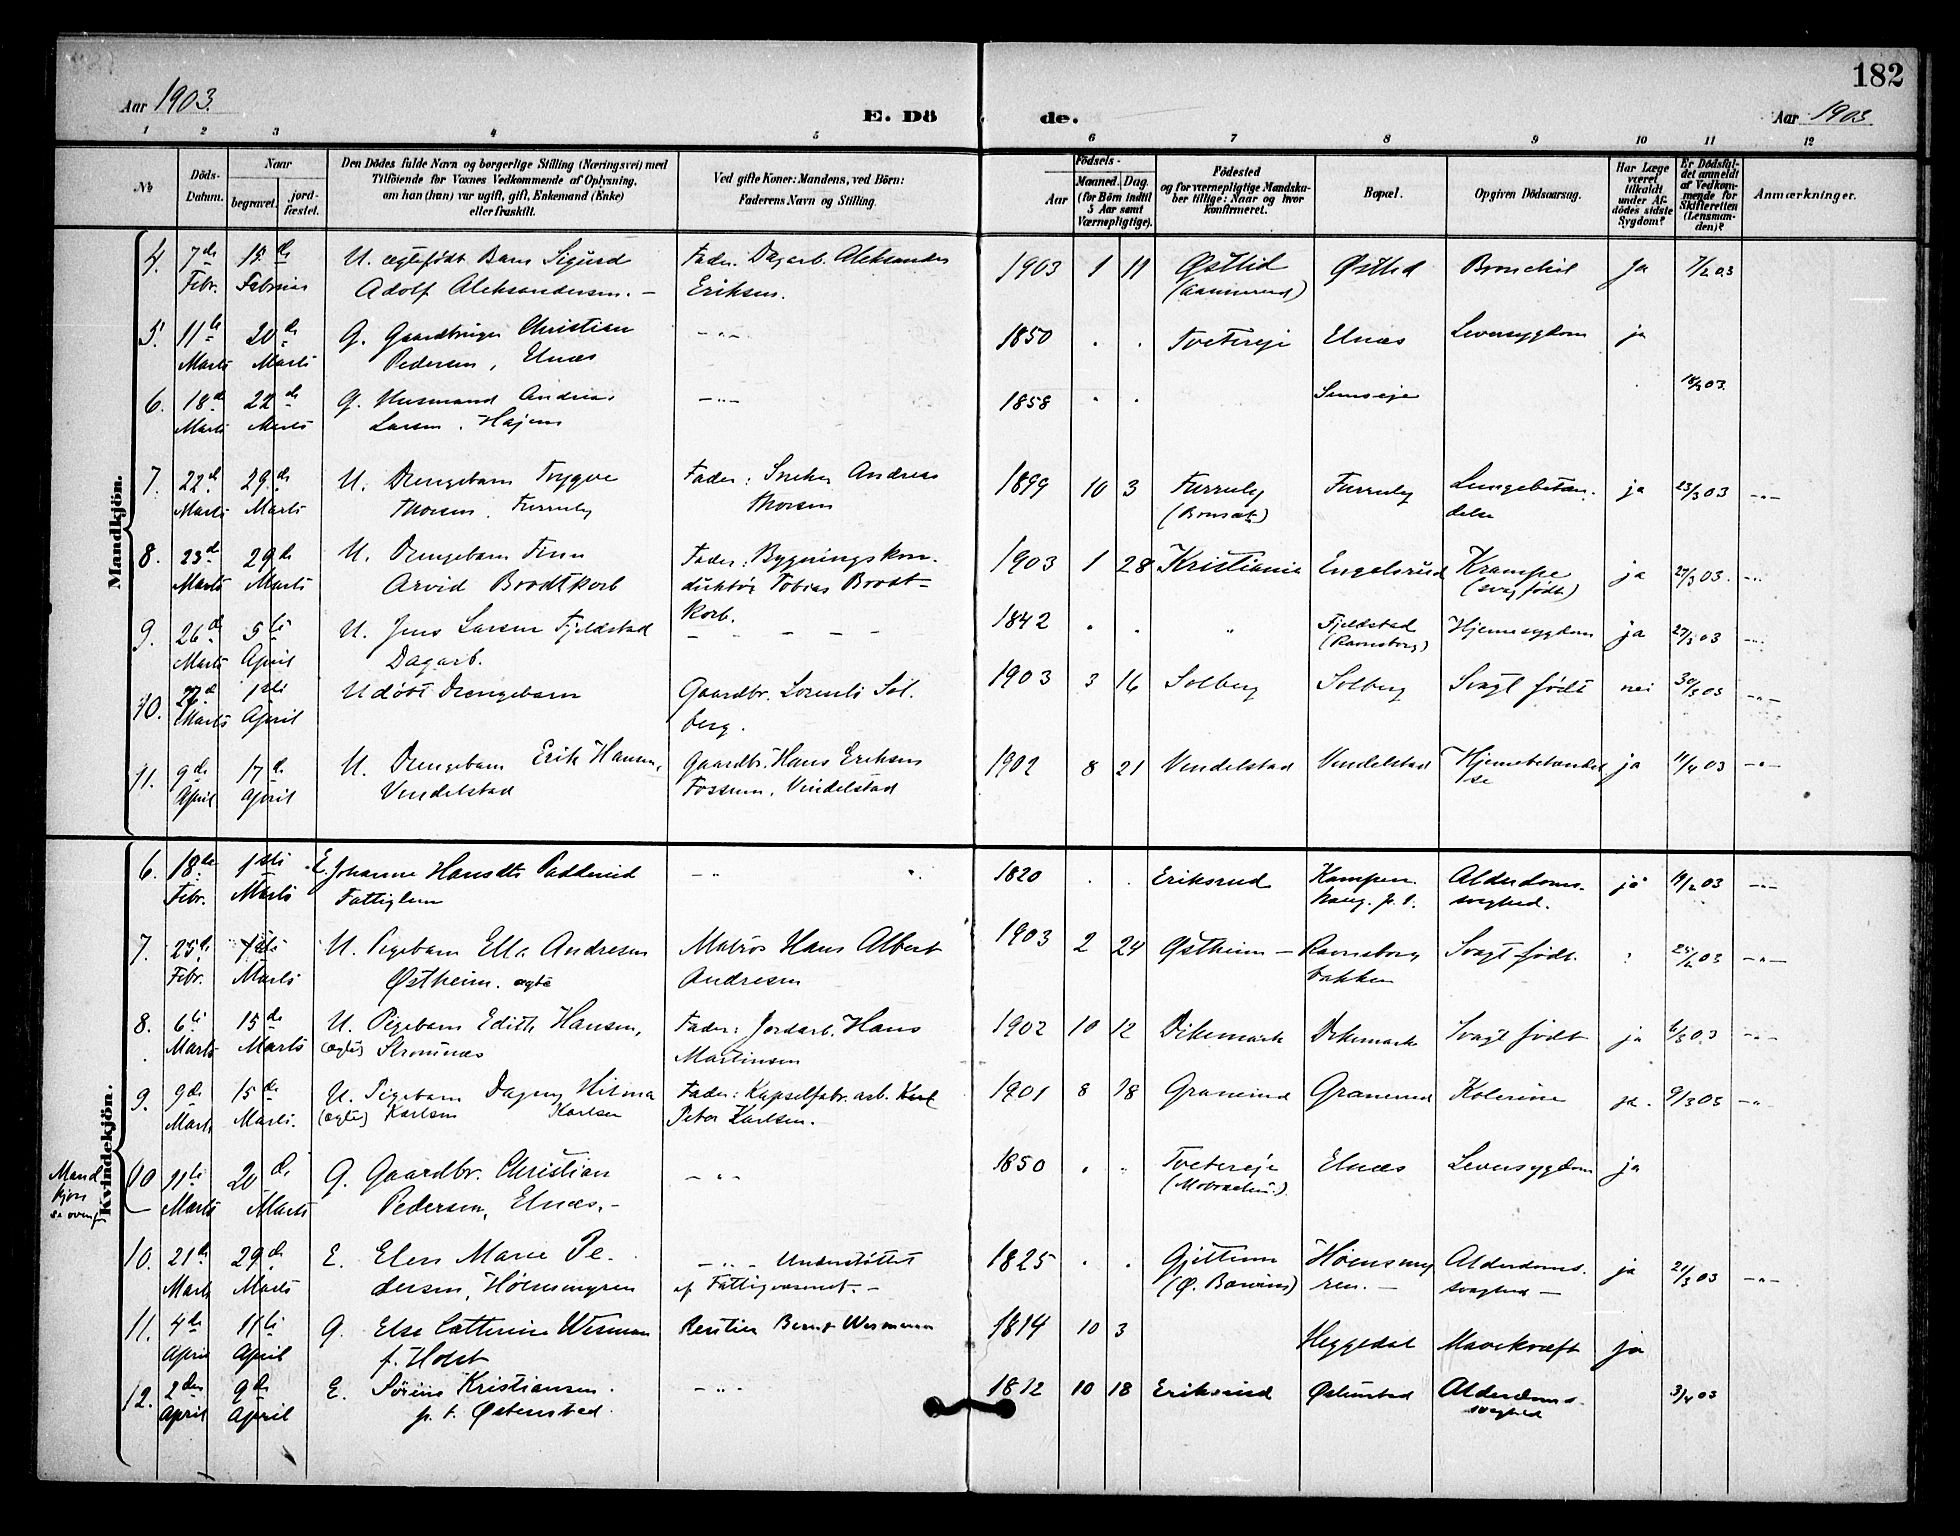 182
Aar 1903.
E. Dö
de.
Aar 1903
1 2 3 4 5 6 7 8 9 10 11 12
No
Döds-
Datum.
Naar
begravet.
jord-
fæstet.
Den Dödes fulde Navn og borgerlige Stilling (Næringsvei) med
Tilföiende for Voxnes Vedkommende af Oplysning,
om han (hun) var ugift, gift, Enkemand (Enke)
eller fraskilt.
Ved gifte Koner: Mandens, ved Börn:
Faderens Navn og Stilling.
Födsels-
Aar
Maaned. Dag.
(for Börn indtil
5 Aar samt
Værnepligtige).
Födested
og for værnepligtige Mandska-
ber tillige: Naar og hvor
konfirmeret.
Bopæl.
Opgiven Dödsaarsag.
Har Læge
været
tilkaldt
under Af-
dödes sidste
Sygdom?
Er Dödsfal-
det anmeldt
af Vedkom-
mende for
Skifteretten
(Lensman-
den)?
Anmærkninger.
Mandkjön.
4. 7de 15de U. ægtefödt Barn Sigurd Fader. Dagarb. Aleksander 1903 1 11 Østlid Østlid Bronchit Ja 7/2 03
Febr. Februar Adolf Aleksandersen. — Eriksen.
5. 11te 20de G. Gaardbruger Christian — " — 1850 . . Tvetereje Elnæs Leversygdom ja
Marts Marts Pedersen, Elnæs
6. 18de 22de G. Husmand Andreas — " — 1858 . . Semseje 18/3 03.
Marts Marts Larsen.
7. 22de 29de U. Drengebarn Trygve Fader: Snekker Andreas 1899 10 3 Furruly Furruly Lungebetæn- ja 23/3 03 — " —
Marts Marts Thorsen, Furruly Thorsen delse
8. 23de 29de U. Drengebarn Finn Fader: Bygningskon- 1903 1 28 Kristiania Engelsrud Krampe ja 27/3 03. — " —
Marts Marts Arvid Brodtkorb duktör Tobias Brodt- (svag födt)
korb.
9. 26de 5te U. Jens Larsen Fjeldstad — — — — 1842 . . " Fjeldstad Hjernesygdom ja 27/3 03 — " —
Marts April Dagarb. (Ravnsborg)
10. 1ste Udöbt Drengebarn Gaardbr. Lorents Sol- 1903 3 16 Solberg Solberg Svagt födt nei 30/3 03 — " —
Marts April berg.
11. 9de 17de U. Drengebarn Erik Hansen, Gaardbr. Hans Eriksen 1902 8 21 Vendelstad Vendelstad Hjernebetændel- ja 11/4 03 — " —
April April Vendelstad Fossum, Vendelstad se
Kvindekjön.
6. 18de 1ste E. Johanne Hansdtr — " — 1820 . . Eriksrud Alderdoms- ja 19/2 03 — " —
Febr. Marts Fattiglem svaghed.
7. 25de 1ste U. Pigebarn Ella Andresen Matros Hans Albert 1903 2 24 Østheim — Ravnsborg Svagt födt. 25/2 03 — " —
Febr. Marts Østheim. ægte Andresen bakken
8. 6te 15de U. Pigebarn Edith Hansen, Fader: Jordarb. Hans 1902 10 12 Dikemark Dikemark Svagt födt ja 6/3 03 — " —
Marts Marts (ægte) Strömnæs Martinsen
9. 9de 15de U. Pigebarn Dagny Hilma Fader: Kapselfabr. arb. Karl 1901 8 18 Granerud Granerud Kolerine ja. 9/3 03 — " —
Marts Marts. (ægte) Karlsen Karlsen Peter Karlsen. —
Mand
kjön
se oven
10 11te 20de G. Gaardbr. Christian — " — 1850 . " Tvetereje Elnæs Leversygdom ja
Marts Marts Pedersen, Elnæs. —
10. 21de 29de E. Elen Marie Pe- — " — Understöttet 1825 . . Gjettum Höensmy- Alderdoms- ja 21/3 03 — " —
Marts Marts dersen, Höensmyren af Fattigvæsenet. — ren. — svaghed —
11. 4de 11te G. Else Catterine Wesman Rentier Bernt Wesmann 1814 10 3 Heggedal Mavekræft ja
April April f. Holst
12. 2den 9de E. Sörine Kristiansen. — " — 1812 10 18 Eriksrud Østenstad Alderdoms- 3/4 03
April April p. t. Østenstad. svaghed